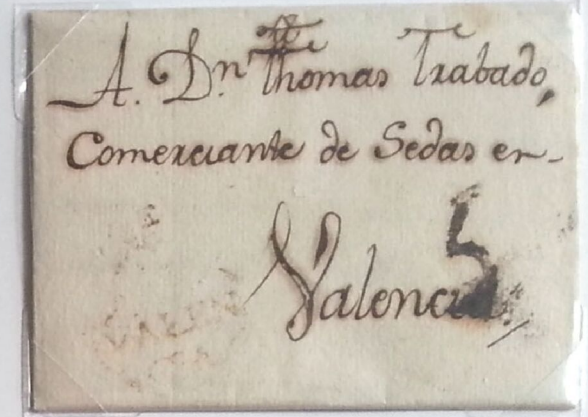 A. Dn Thomas Trabado,
Comerciante de Sedas en
Valencia.
5